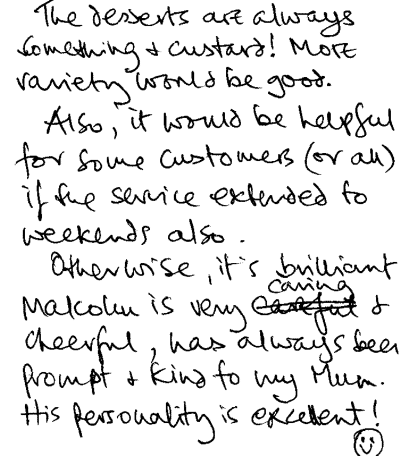 The desserts are always
something & custard! More
variety would be good.
Also, it would be helpful
for some customers (or all)
if the service extended to
weekends also.
Otherwise, it's brilliant
caring
Malcolm is very careful &
cheerful, has always been
prompt & kind to my Mum.
His personality is excellent!